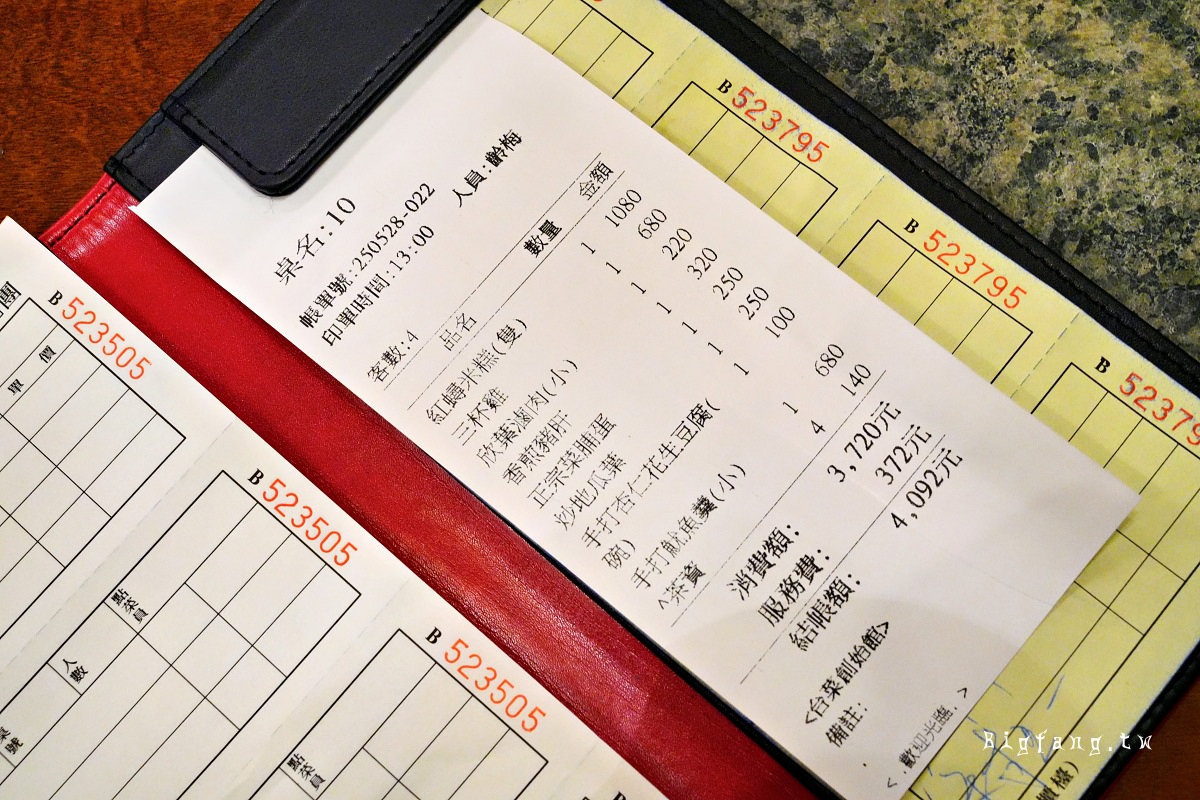 桌名:10
帳單號:250528-022
印單時間:13:00 人員:齡梅
客數:4
品名 數量 金額
紅蟳米糕(隻) 1 1080
三杯雞 1 680
欣葉滷肉(小) 1 220
香煎豬肝 1 320
正宗菜脯蛋 1 250
炒地瓜葉 1 250
手打杏仁花生豆腐(
碗) 100
手打魷魚羹(小) 1 680
^茶資 4 140
消費額: 3,720元
服務費: 372元
結帳額: 4,092元
<台菜創始館>
備註:
<.歡迎光臨.>
B 523795
B 523795
B 52379
B 523505
單價
B 523505
點菜員
人數
B 523505
點菜員
桌號
團
櫃檯)
Bigfang.tw